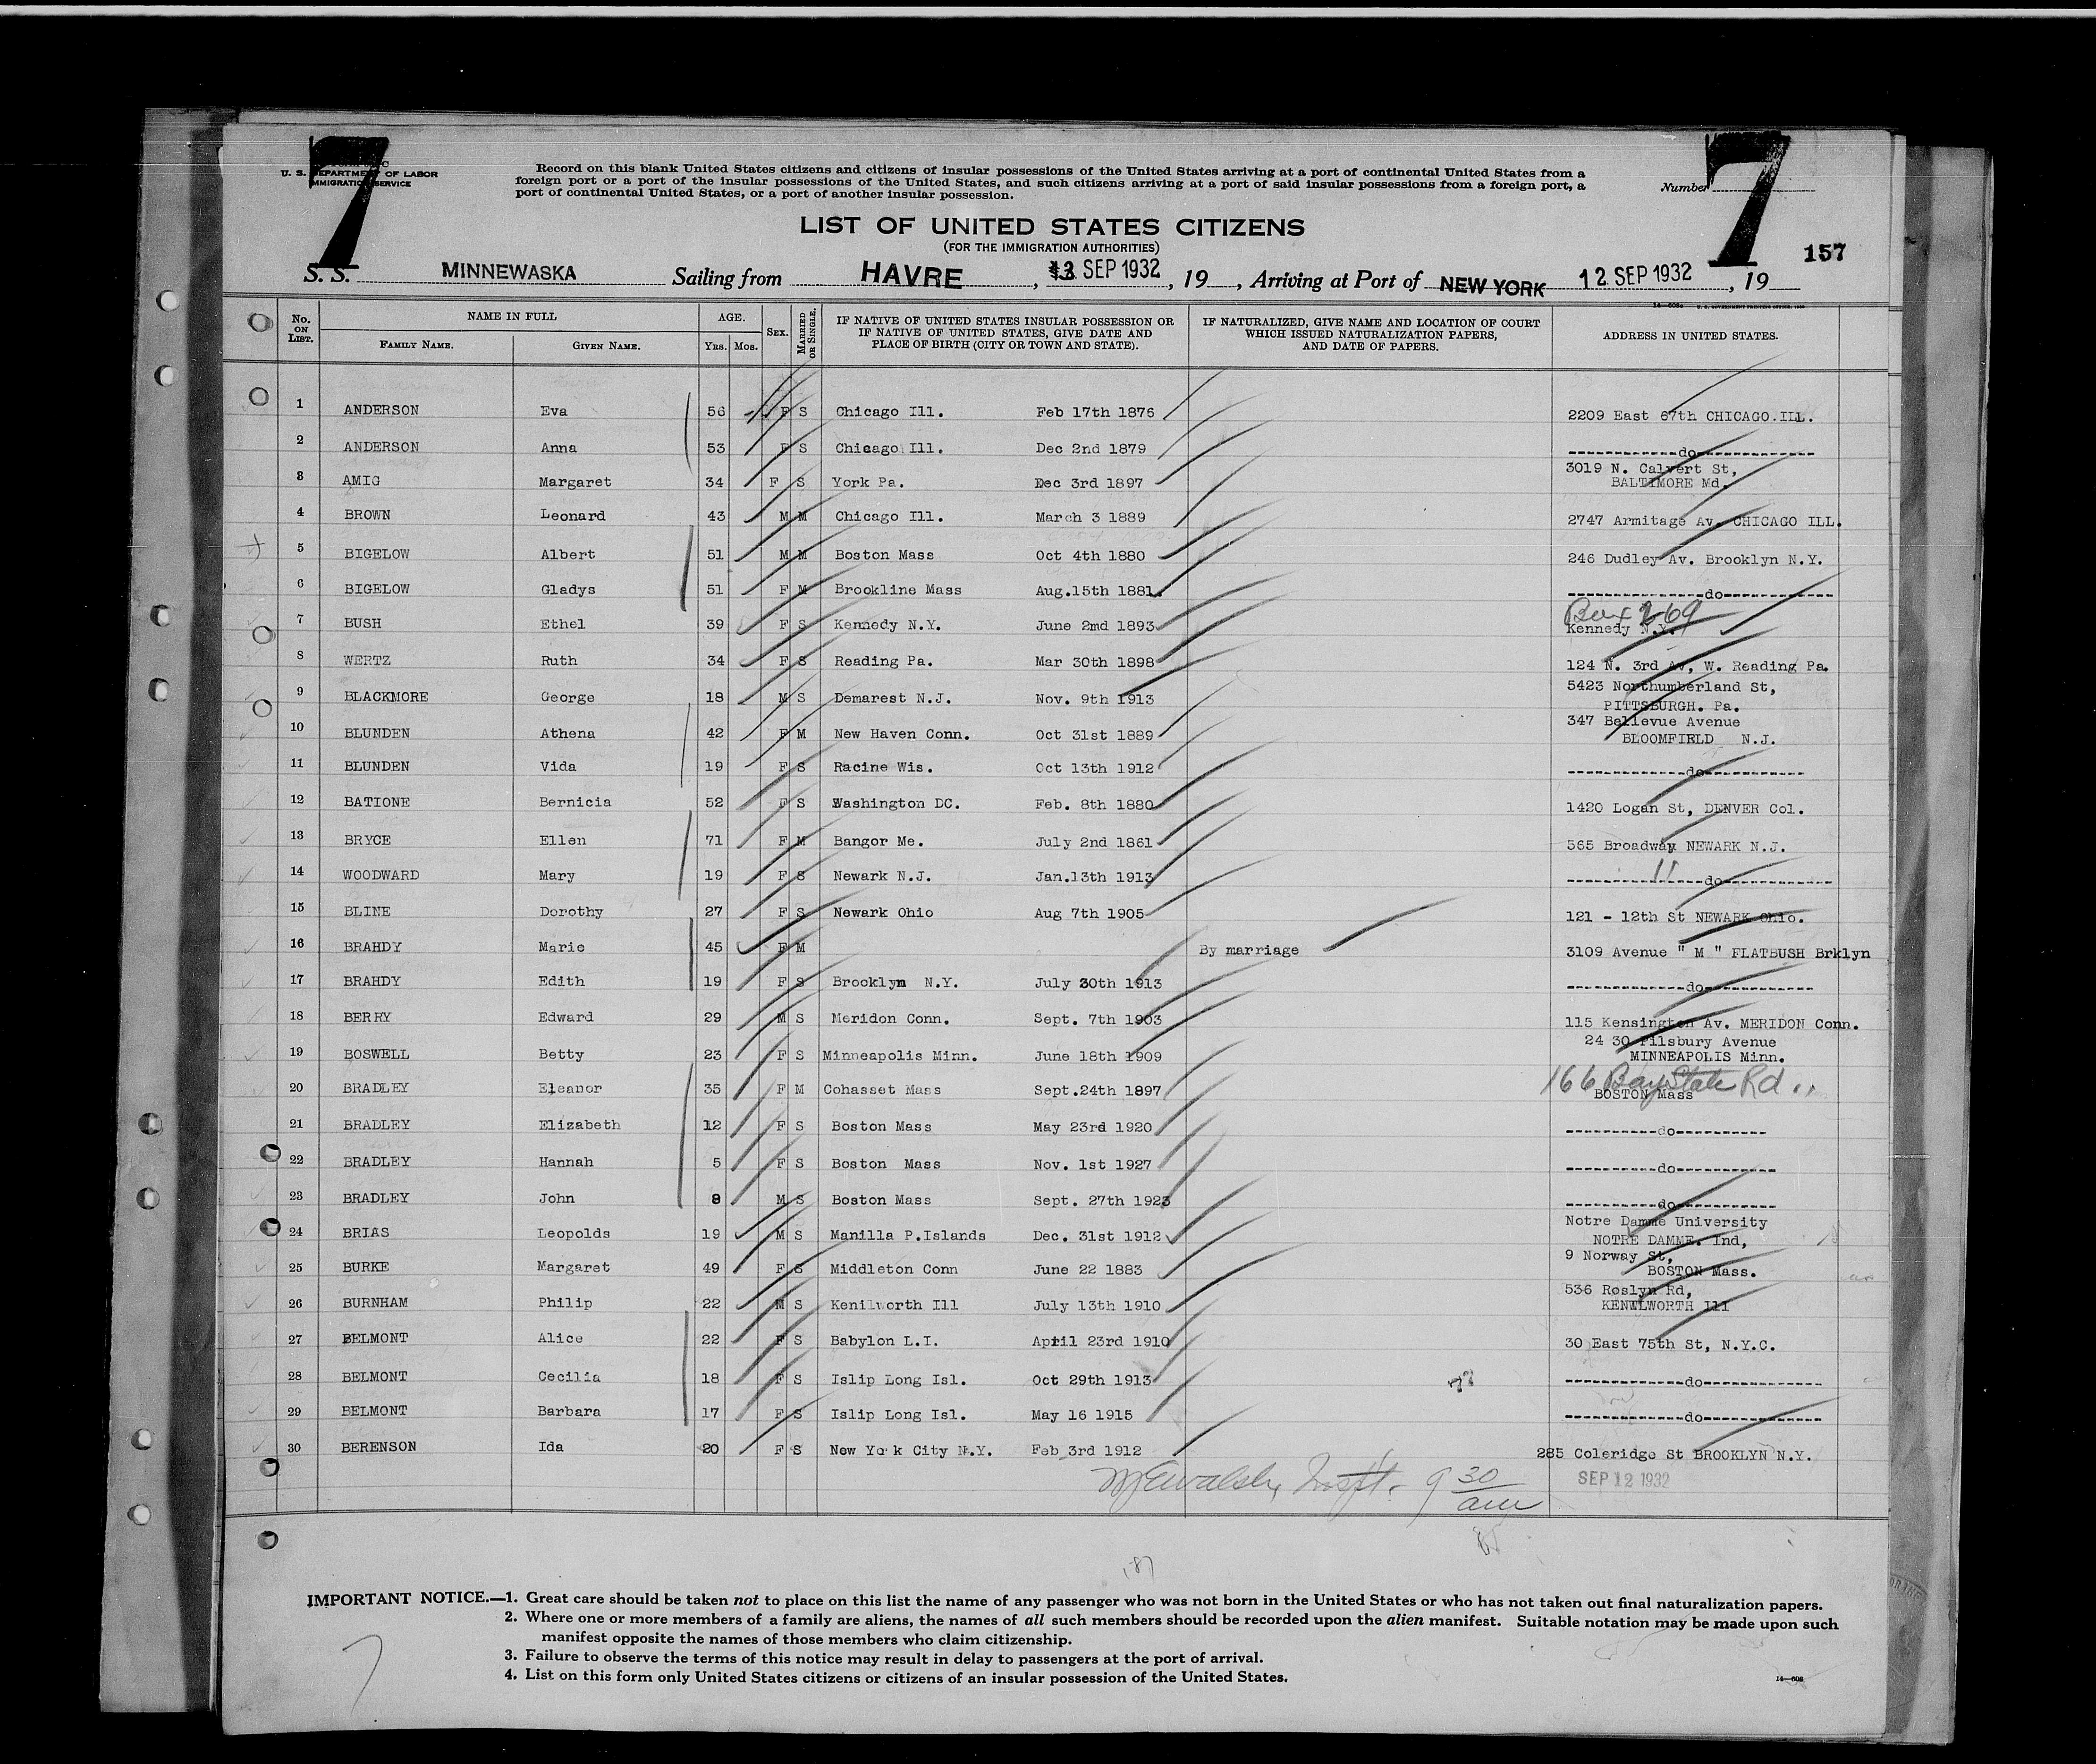 7
7
U. S. DEPARTMENT OF LABOR
IMMIGRATION SERVICE
Record on this blank United States citizens and citizens of insular possessions of the United States arriving at a port of continental United States from a
foreign port or a port of the insular possessions of the United States, and such citizens arriving at a port of said insular possessions from a foreign port, a
port of continental United States, or a port of another insular possession.
Number
LIST OF UNITED STATES CITIZENS
(FOR THE IMMIGRATION AUTHORITIES)
157
S. S. MINNEWASKA Sailing from HAVRE, SEP 1932, 19 , Arriving at Port of NEW YORK 12 SEP 1932, 19
No. ON LIST. NAME IN FULL FAMILY NAME. GIVEN NAME. AGE. YRS. MOS. SEX. MARRIED OR SINGLE. IF NATIVE OF UNITED STATES INSULAR POSSESSION OR IF NATIVE OF UNITED STATES, GIVE DATE AND PLACE OF BIRTH (CITY OR TOWN AND STATE). IF NATURALIZED, GIVE NAME AND LOCATION OF COURT WHICH ISSUED NATURALIZATION PAPERS, AND DATE OF PAPERS. ADDRESS IN UNITED STATES.
1 ANDERSON Eva 56 F S Chicago Ill. Feb 17th 1876 2209 East 67th CHICAGO.ILL.
2 ANDERSON Anna 53 F S Chicago Ill. Dec 2nd 1879 ------------do------------
3 AMIG Margaret 34 F S York Pa. Dec 3rd 1897 3019 N. Calvert St,
BALTIMORE Md.
4 BROWN Leonard 43 M M Chicago Ill. March 3 1889 2747 Armitage Av. CHICAGO ILL.
5 BIGELOW Albert 51 M M Boston Mass Oct 4th 1880 246 Dudley Av. Brooklyn N.Y.
6 BIGELOW Gladys 51 F M Brookline Mass Aug.15th 1881. ---------------do------------
7 BUSH Ethel 39 F S Kennedy N.Y. June 2md 1893 Box 269
Kennedy N.Y.
8 WERTZ Ruth 34 F S Reading Pa. Mar 30th 1898 124 N. 3rd Av, W. Reading Pa.
9 BLACKMORE George 18 M S Demarest N.J. Nov. 9th 1913 5423 Northumberland St,
PITTSBURGH. Pa.
10 BLUNDEN Athena 42 F M New Haven Conn. Oct 31st 1889 347 Bellevue Avenue
BLOOMFIELD N.J.
11 BLUNDEN Vida 19 F S Racine Wis. Oct 13th 1912 -------------do-----------
12 BATIONE Bernicia 52 F S Washington DC. Feb. 8th 1880 1420 Logan St, DENVER Col.
13 BRYCE Ellen 71 F M Bangor Me. July 2nd 1861 565 Broadway NEWARK N.J.
14 WOODWARD Mary 19 F S Newark N.J. Jan.13th 1913 ---------------do------------
15 BLINE Dorothy 27 F S Newark Ohio Aug 7th 1905 121 - 12th St NEWARK Ohio.
16 BRAHDY Marie 45 F M By marriage 3109 Avenue " M " FLATBUSH Brklyn
17 BRAHDY Edith 19 F S Brooklyn N.Y. July 30th 1913 -------------do------------
18 BERRY Edward 29 M S Meridon Conn. Sept. 7th 1903 115 Kensington Av. MERIDON Conn.
19 BOSWELL Betty 23 F S Minneapolis Minn. June 18th 1909 24 30 Pilsbury Avenue
MINNEAPOLIS Minn.
20 BRADLEY Eleanor 35 F M Cohasset Mass Sept.24th 1897 166 Bay State Rd
BOSTON Mass
21 BRADLEY Elizabeth 12 F S Boston Mass May 23rd 1920 ----------do----------
22 BRADLEY Hannah 5 F S Boston Mass Nov. 1st 1927 ----------do-----------
23 BRADLEY John 8 M S Boston Mass Sept. 27th 1923 ----------do-----------
24 BRIAS Leopolds 19 M S Manilla P.Islands Dec. 31st 1912 Notre Damme University
NOTRE DAMME. Ind,
25 BURKE Margaret 49 F S Middleton Conn June 22 1883 9 Norway St,
BOSTON Mass.
26 BURNHAM Philip 22 M S Kenilworth Ill July 13th 1910 536 Roslyn Rd,
KENILWORTH Ill
27 BELMONT Alice 22 F S Babylon L.I. April 23rd 1910 30 East 75th St, N.Y.C.
28 BELMONT Cecilia 18 F S Islip Long Isl. Oct 29th 1913 -------------do-------------
29 BELMONT Barbara 17 F S Islip Long Isl. May 16 1915 -------------do-------------
30 BERENSON Ida 20 F S New York City N.Y. Feb 3rd 1912 285 Coleridge St BROOKLYN N.Y.
9 30 am SEP 12 1932
IMPORTANT NOTICE.—1. Great care should be taken not to place on this list the name of any passenger who was not born in the United States or who has not taken out final naturalization papers.
2. Where one or more members of a family are aliens, the names of all such members should be recorded upon the alien manifest. Suitable notation may be made upon such
manifest opposite the names of those members who claim citizenship.
3. Failure to observe the terms of this notice may result in delay to passengers at the port of arrival.
4. List on this form only United States citizens or citizens of an insular possession of the United States.
14—608
7